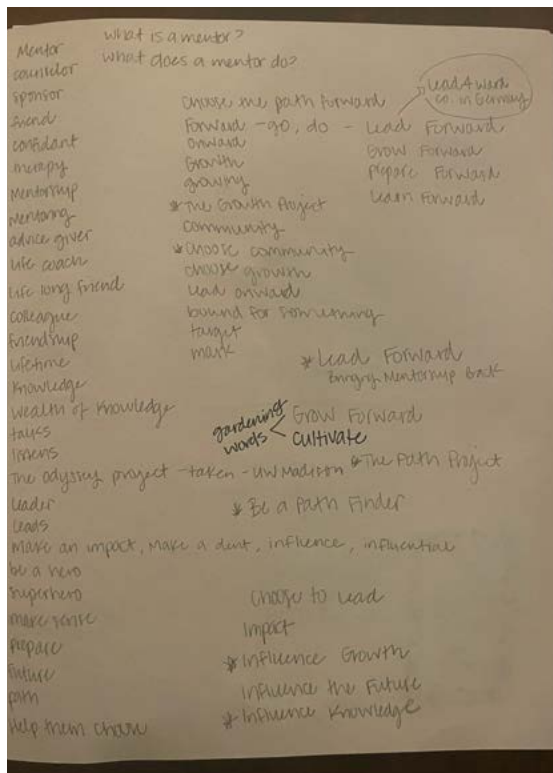 what is a mentor?
what does a mentor do?
Mentor
counselor
sponsor
friend
confidant
therapy
Mentorship
Mentoring
advice giver
life coach
life long friend
colleague
friendship
lifetime
Knowledge
wealth of knowledge
talks
listens
The odyssey project - taken - UW Madison
leader
leads
make an impact, make a dent, influence, influential
be a hero
superhero
make sense
prepare
future
path
Help them
choose the path forward
Forward - go, do - Lead Forward
Lead 4 ward
co. in Germany
onward
Grow Forward
Growth
Prepare Forward
growing
Learn Forward
* The Growth Project
community
* choose community
choose growth
lead onward
bound for something
target
mark
* Lead Forward
Bringing Mentorship Back
gardening
words < Grow Forward
cultivate
* The Path Project
* Be a Path Finder
Choose to lead
Impact
* Influence Growth
Influence the Future
* Influence Knowledge